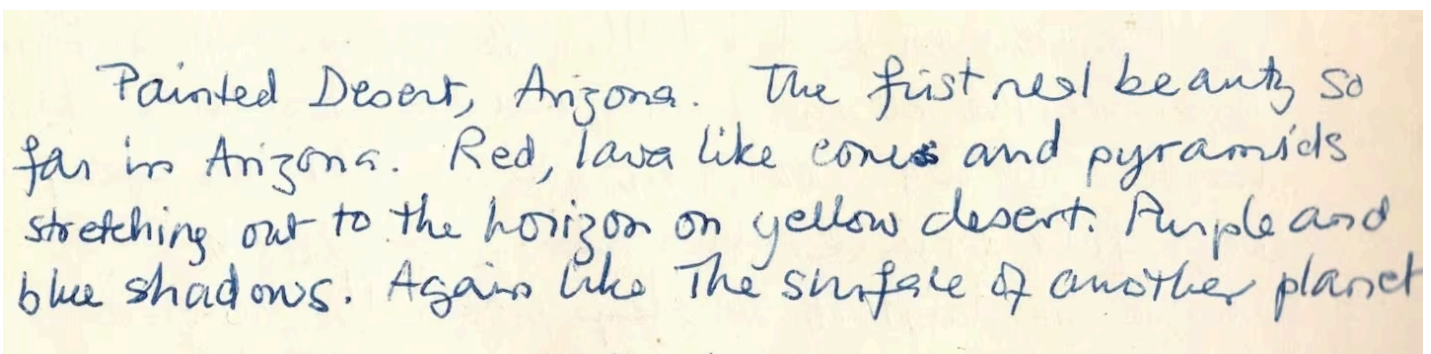 Painted Desert, Arizona. The first real beauty so
far in Arizona. Red, lava like cones and pyramids
stretching out to the horizon on yellow desert. Purple and
blue shadows. Again like The surface of another planet